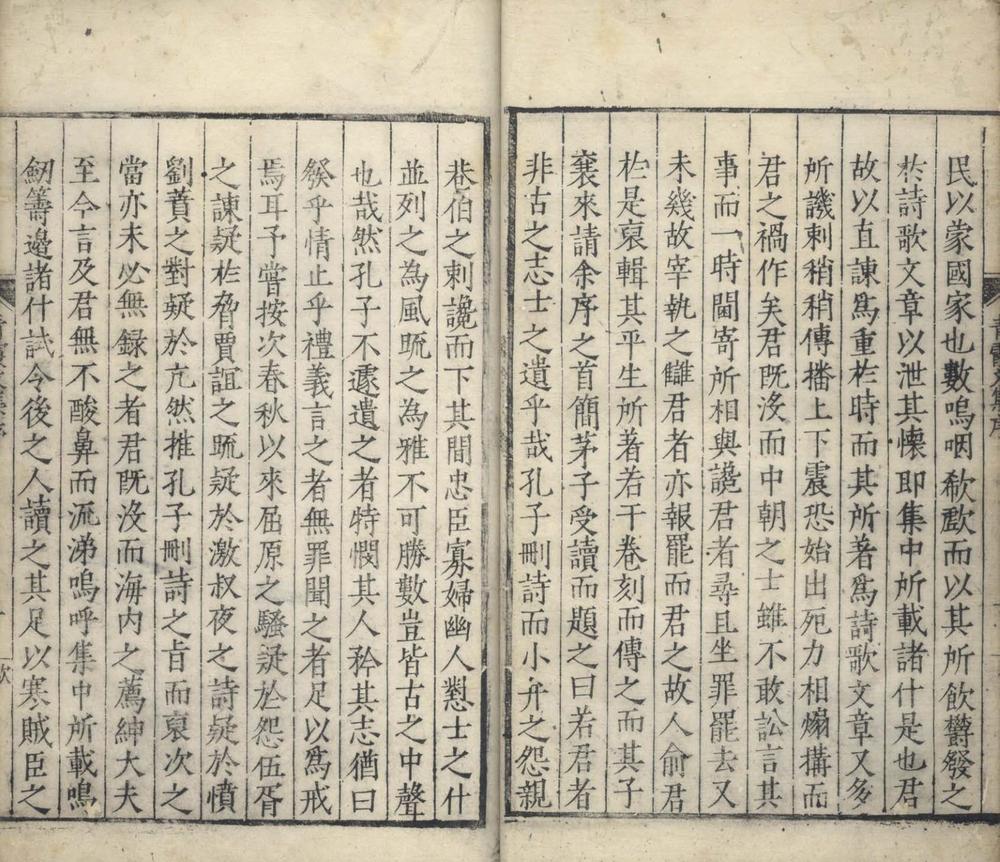 民以蒙國家也數嗚咽欷歔而以其所飲欝發之
於詩歌文章以泄其懷即集中所載諸什是也君
故以直諫為重於時而其所著為詩歌文章又多
所譏刺稍稍傳播上下震恐始出死力相煽搆而
君之禍作矣君既沒而中朝之士雖不敢訟言其
事而一時閫寄所相與讒君者尋且坐罪罷去又
未幾故宰執之讎君者亦報罷而君之故人俞君
於是裒輯其平生所著若干卷刻而傳之而其子
襄來請余序之首簡茅子受讀而題之曰若君者
非古之志士之遺乎哉孔子刪詩而小弁之怨親
巷伯之刺讒而下其間忠臣寡婦幽人懟士之什
並列之為風䟽之為雅不可勝數豈皆古之中聲
也哉然孔子不遽遺之者特憫其人矜其志猶曰
發乎情止乎禮義言之者無罪聞之者足以為戒
焉耳予嘗按次春秋以來屈原之騷疑於怨伍胥
之諫疑於脅賈誼之䟽疑於激叔夜之詩疑於憤
劉蕡之對疑於亢然推孔子刪詩之旨而裒次之
當亦未必無録之者君既沒而海内之薦紳大夫
至今言及君無不酸鼻而流涕嗚呼集中所載鳴
劒籌邊諸什試令後之人讀之其足以寒賊臣之